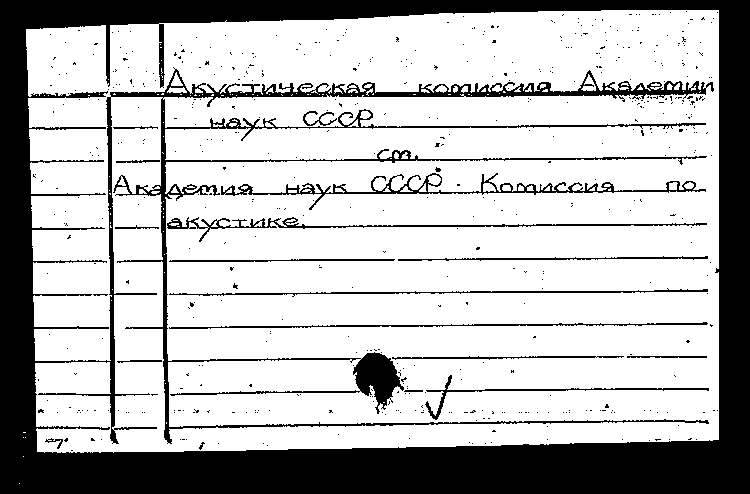 Акустическая комиссия Академии
наук СССР.
см.
Академия наук СССР. Комиссия по
акустике.